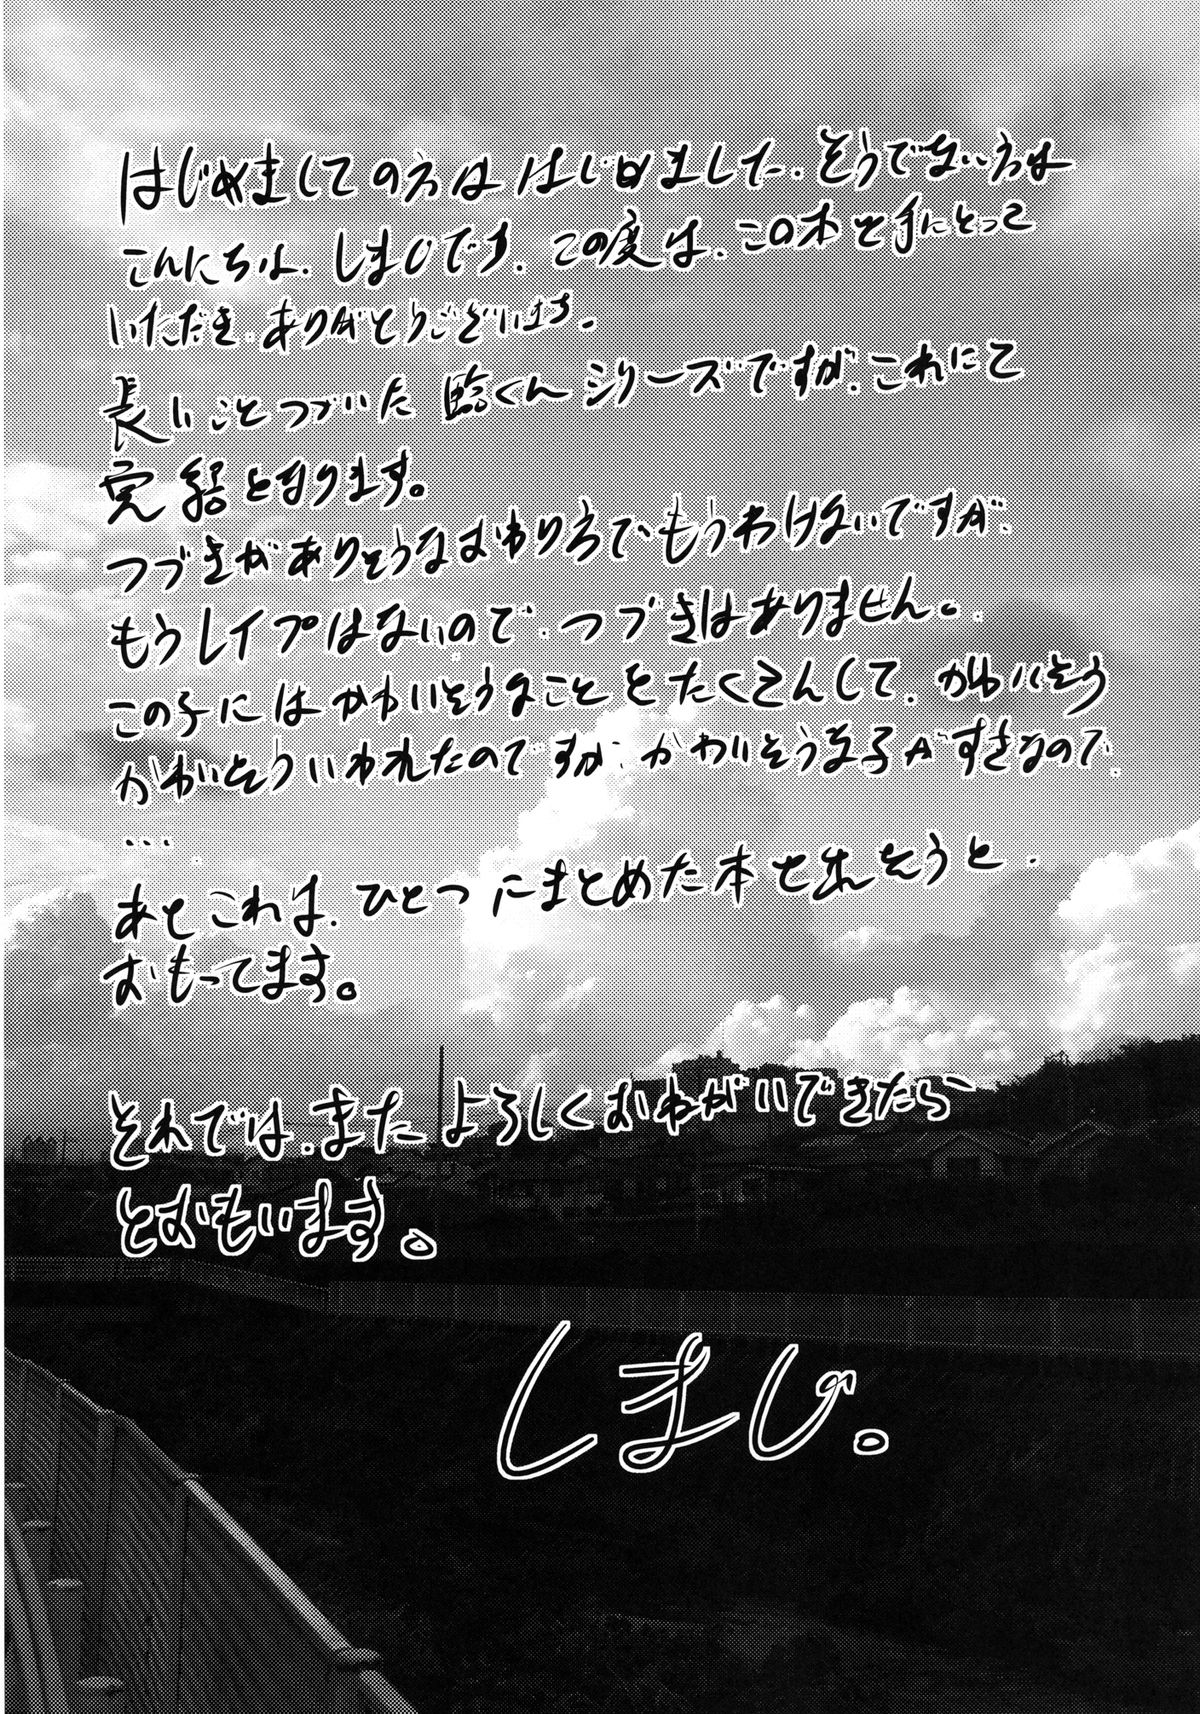 はじめましての方ははじめました. そうでない方は
こんにちは. しまじです. この度は. この本を手にとって
いただき. ありがとうございまち。
長いことつづいた 臨くんシリーズですが. これにて
完結となります。
つづきがありそうなおわり方でもうわけないですが.
もうレイプはないので. つづきはありません。
この子にはかわいそうなことをたくさんして. かわいそう
かわいそういわれたのですが. かわいそうな子がすきなので.
...
あとこれは. ひとつにまとめた本を出そうと.
おもってます。
それでは. またよろしくおねがいできたら
とおもいます。
しまじ。